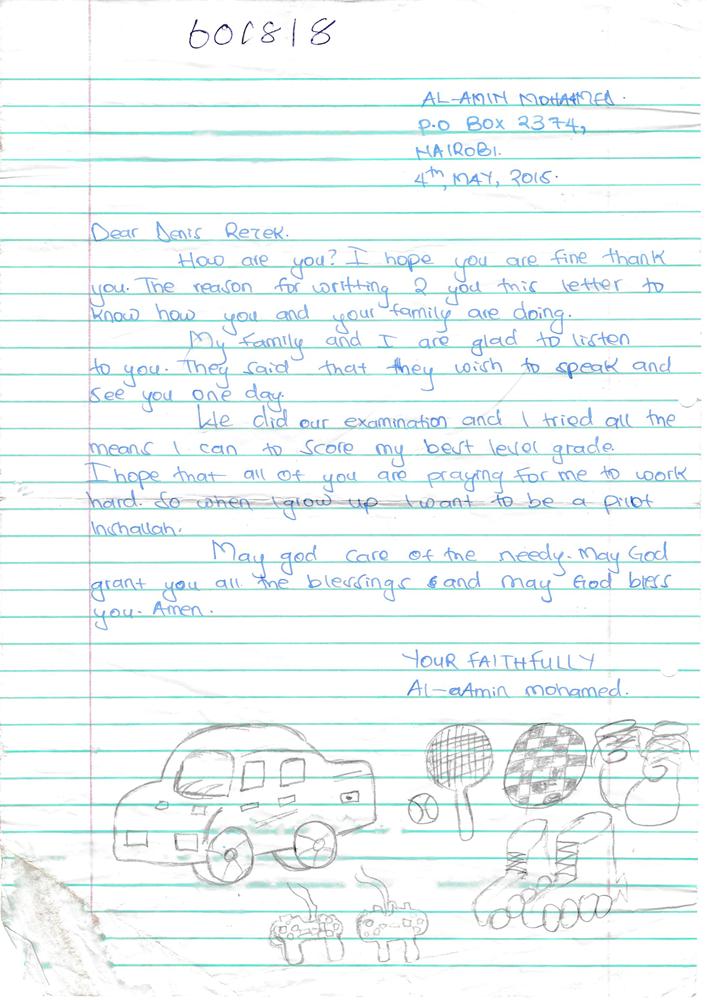 601818
AL-AMIN MOHAMED.
P.O BOX 2374,
NAIROBI.
4th, MAY, 2015.
Dear Denis Rezek.
How are you? I hope you are fine thank
you. The reason for writting 2 you this letter to
know how you and your family are doing.
My family and I are glad to listen
to you. They said that they wish to speak and
see you one day.
We did our examination and I tried all the
means I can to score my best level grade.
I hope that all of you are praying for me to work
hard. So when I glow up I want to be a pilot
Inshallah.
May god care of the needy. May God
grant you all the blessings and may God bless
you. Amen.
YOUR FAITHFULLY
Al-aAmin mohamed.